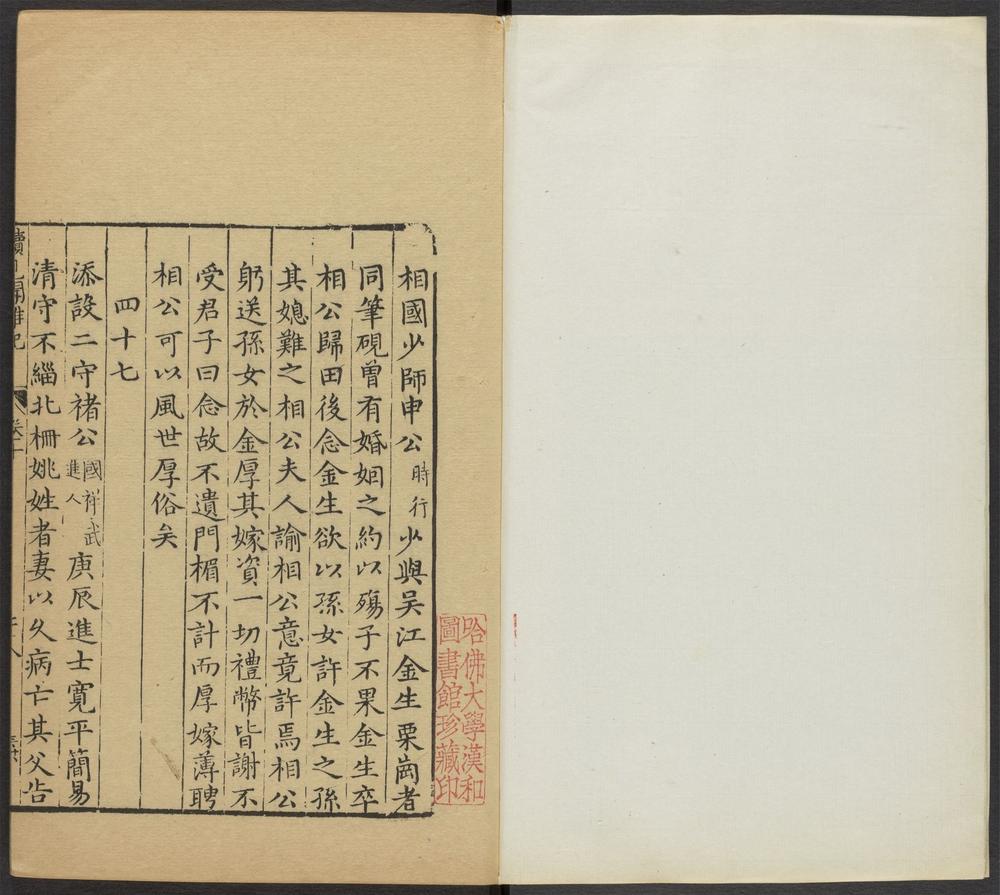 哈佛大學漢和
圖書館珍藏印
相國少師申公時行少與吴江金生栗崗者
同筆硯曾有婚姻之約以殤子不果金生卒
相公歸田後念金生欲以孫女許金生之孫
其媳難之相公夫人諭相公意竟許焉相公
躬送孫女於金厚其嫁資一切禮幣皆謝不
受君子曰念故不遺門楣不計而厚嫁薄聘
相公可以風世厚俗矣
四十七
添設二守褚公國祥武進人庚辰進士寬平簡易
清守不緇北柵姚姓者妻以久病亡其父告